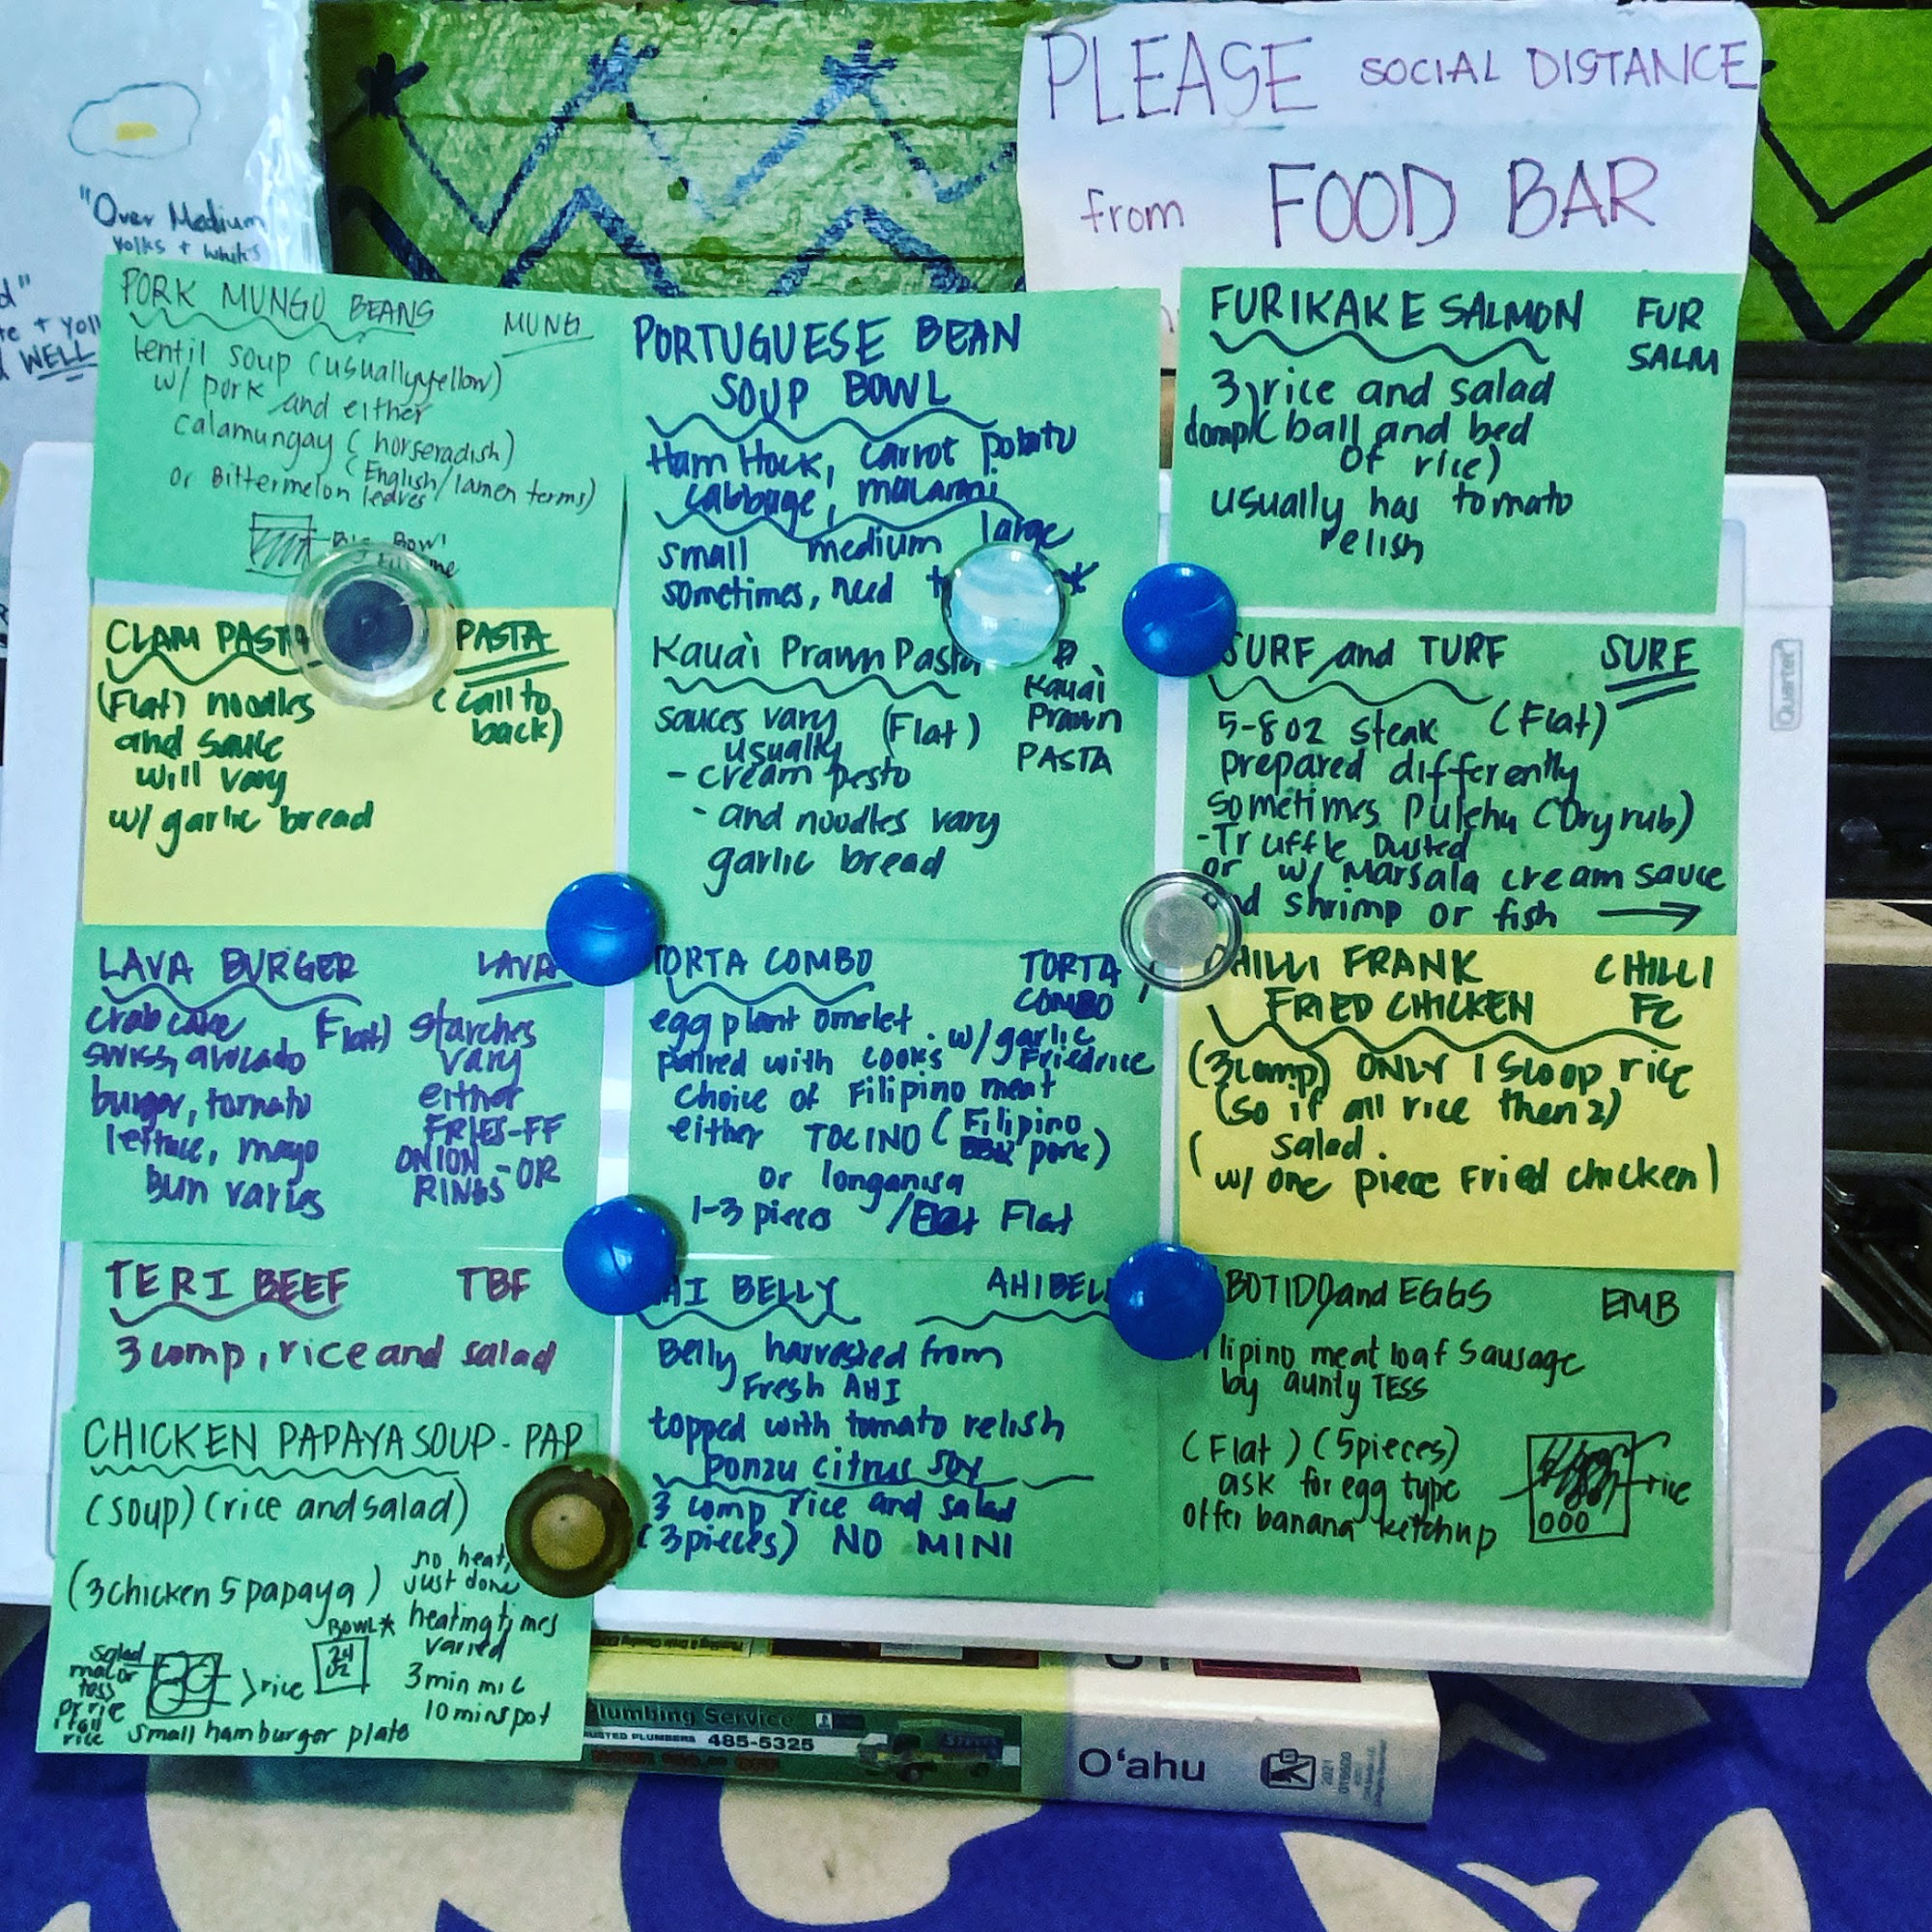 "Over Medium
Yolks + whites
WELL
PLEASE SOCIAL DISTANCE
from FOOD BAR
PORK MUNGU BEANS MUNG
lentil soup (usually yellow)
w/ pork and either
calamungay (horseradish)
(English/lamen terms)
or Bittermelon leaves
Big Bowl
CLAM PASTA PASTA
(Flat) noodles (call to
and sauce back)
will vary
w/ garlic bread
LAVA BURGER LAVA
crab cake (Flat) starches
swiss, avocado vary
burger, tomato either
lettuce, mayo FRIES-FF
Bun varies ONION - OR
RINGS
TERI BEEF TBF
3 comp, rice and salad
CHICKEN PAPAYA SOUP - PAP
(soup) (rice and salad)
(3 chicken 5 papaya)
no heat,
just done
heating times
varied
3 min mic
10 mins pot
BOWL*
24
OZ
salad
mac or
toss
or rice
if all
rice
rice
small hamburger plate
PORTUGUESE BEAN
SOUP BOWL
Ham Hock, carrot potato
cabbage, macaroni
small medium large
sometimes, need
Kauai Prawn Pasta
Kauai
Prawn
PASTA
sauces vary (Flat)
usually
- cream pesto
- and noodles vary
garlic bread
TORTA COMBO TORTA
COMBO
egg plant omelet w/ garlic
Friedrice
paired with cooks
choice of Filipino meat
either TOCINO (Filipino
BBQ pork)
or longanisa
1-3 pieces / Flat
AHI BELLY AHIBELL
Belly harvested from
Fresh AHI
topped with tomato relish
ponzu citrus soy
3 comp rice and salad
(3 pieces) NO MINI
FURIKAKE SALMON FUR
SALM
3 rice and salad
comp (ball and bed
of rice)
usually has tomato
relish
SURF and TURF SURF
5-8 oz steak (Flat)
prepared differently
sometimes Pulehu (Dry rub)
-Truffle Dusted
or w/ Marsala cream sauce
and shrimp or fish →
CHILLI FRANK CHILLI
FRIED CHICKEN FC
(3 comp) ONLY 1 SCOOP rice
(so if all rice then 2)
salad.
(w/ one piece Fried chicken)
EMBOTIDO and EGGS EMB
Filipino meat loaf sausage
by aunty TESS
(Flat) (5 pieces)
ask for egg type
offer banana ketchup
rice
Quartet
Plumbing Service
TRUSTED PLUMBERS 485-5325
Oʻahu
2021